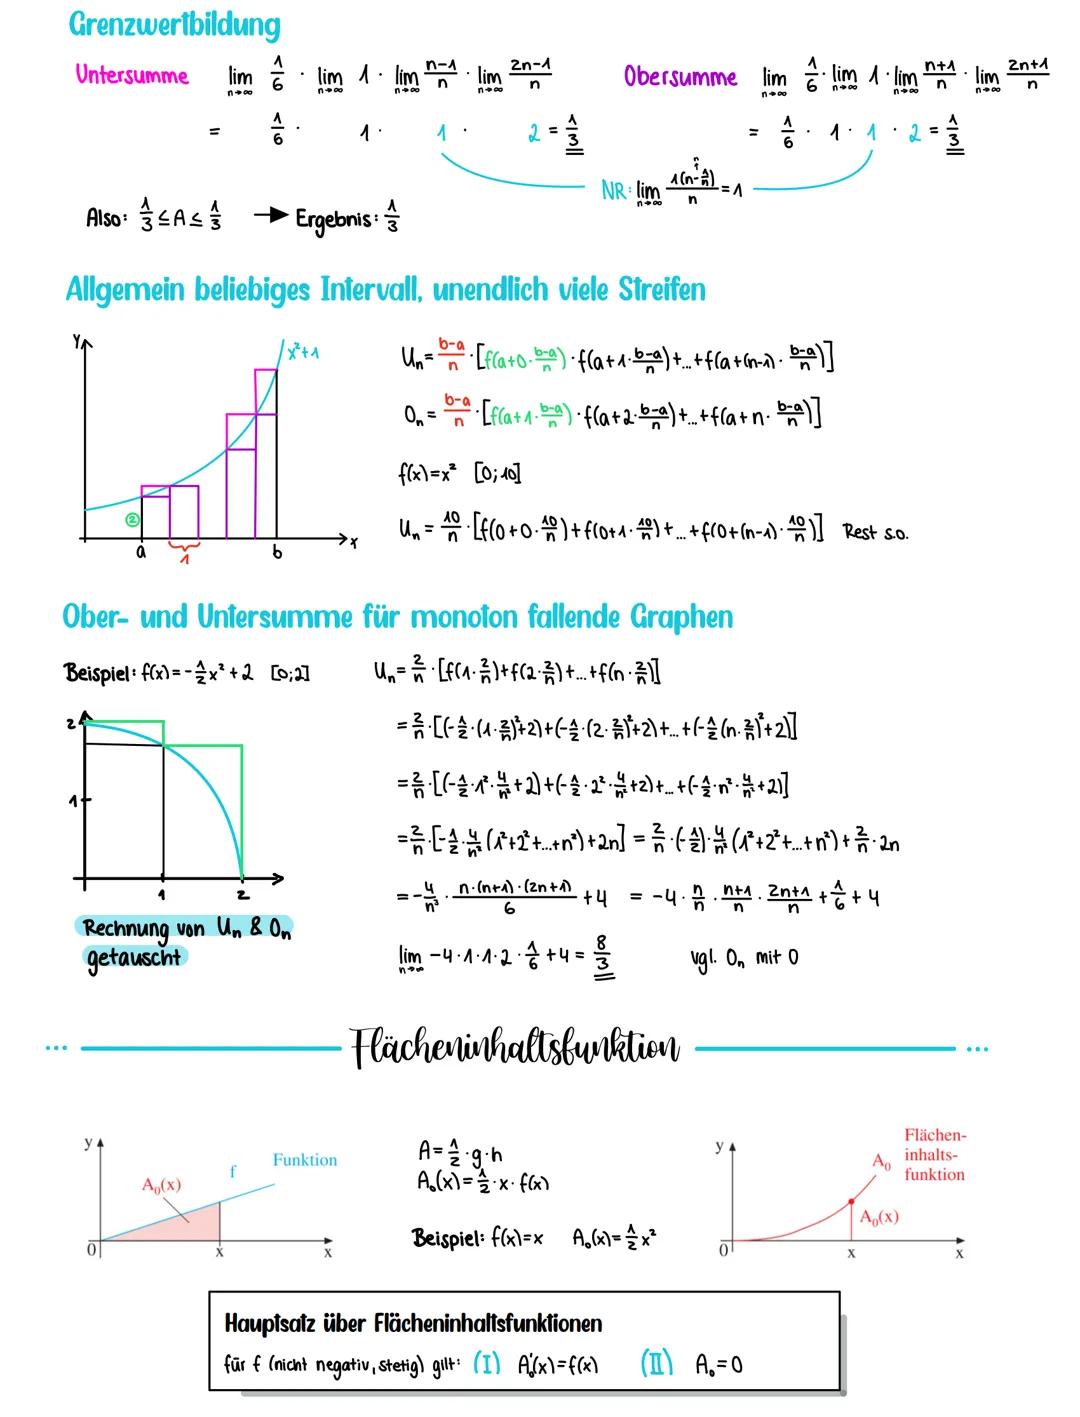 Grenzwertbildung
Untersumme lim n→∞ 1/6 · lim n→∞ 1 · lim n→∞ (n-1)/n · lim n→∞ (2n-1)/n
= 1/6 · 1 · 1 · 2 = 1/3
Obersumme lim n→∞ 1/6 · lim n→∞ 1 · lim n→∞ (n+1)/n · lim n→∞ (2n+1)/n
= 1/6 · 1 · 1 · 2 = 1/3
NR: lim n→∞ 1(n-1/n)/n = 1
Also: 1/3 ≤ A ≤ 1/3 → Ergebnis: 1/3
Allgemein beliebiges Intervall, unendlich viele Streifen
y
x²+1
②
a
1
b
x
Uₙ = (b-a)/n · [f(a+0·(b-a)/n) · f(a+1·(b-a)/n)+...+f(a+(n-1)·(b-a)/n)]
Oₙ = (b-a)/n · [f(a+1·(b-a)/n) · f(a+2·(b-a)/n)+...+f(a+n·(b-a)/n)]
f(x)=x² [0;10]
Uₙ = 10/n · [f(0+0·10/n)+f(0+1·10/n)+...+f(0+(n-1)·10/n)] Rest s.o.
Ober- und Untersumme für monoton fallende Graphen
Beispiel: f(x)=-1/2x²+2 [0;2]
2
1
1
2
Rechnung von Uₙ & Oₙ
getauscht
Uₙ = 2/n · [f(1·2/n)+f(2·2/n)+...+f(n·2/n)]
= 2/n · [(-1/2·(1·2/n)²+2)+(-1/2·(2·2/n)²+2)+...+(-1/2(n·2/n)²+2)]
= 2/n · [(-1/2·1²·4/n²+2)+(-1/2·2²·4/n²+2)+...+(-1/2·n²·4/n²+2)]
= 2/n · [-1/2·4/n²(1²+2²+...+n²)+2n] = 2/n·(-1/2)·4/n²(1²+2²+...+n²)+2/n·2n
= -4/n³ · n·(n+1)·(2n+1)/6 +4 = -4·n/n·(n+1)/n·(2n+1)/n+1/6+4
lim n→∞ -4·1·1·2·1/6+4 = 8/3 vgl. Oₙ mit 0
... Flächeninhaltsfunktion ...
y
A₀(x)
f
Funktion
0
x
x
A=1/2·g·h
A₀(x)=1/2·x·f(x)
Beispiel: f(x)=x A₀(x)=1/2x²
y
Flächen-
inhalts-
funktion
A₀
A₀(x)
0
x
x
Hauptsatz über Flächeninhaltsfunktionen
für f (nicht negativ, stetig) gilt: (I) A₀'(x)=f(x) (II) A₀=0